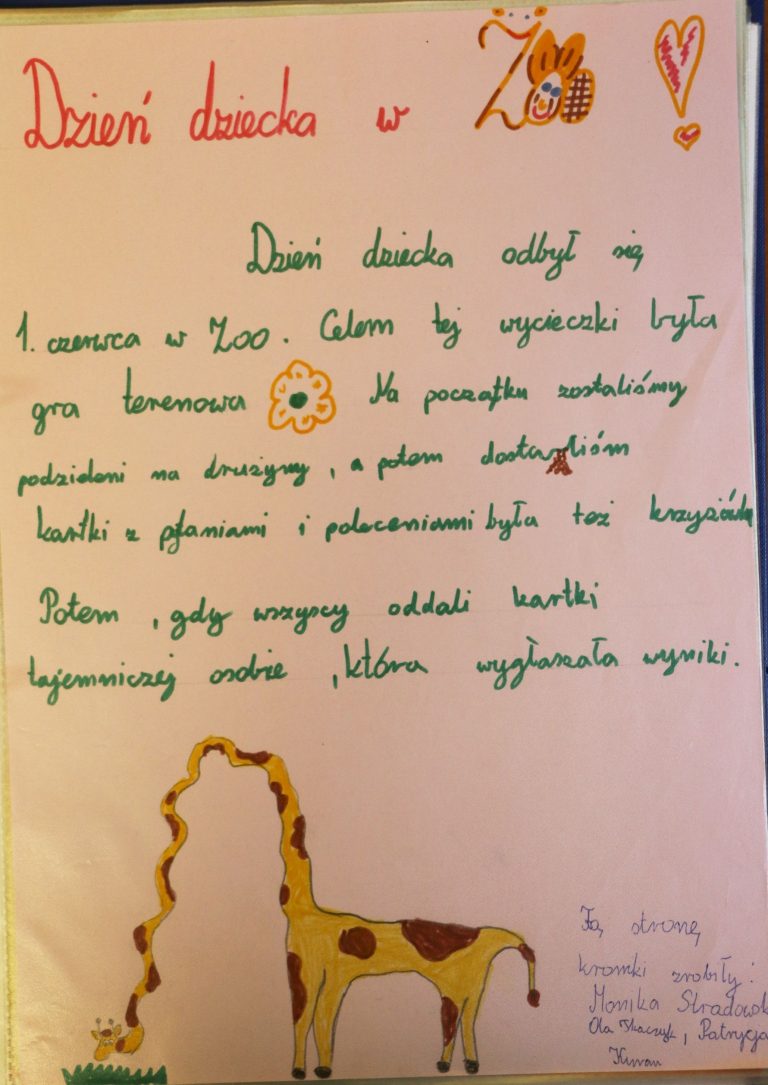 Dzień dziecka w Zoo!
Dzień dziecka odbył się
1. czerwca w Zoo. Celem tej wycieczki była
gra terenowa Na początku zostaliśmy
podzieleni na drużyny, a potem dostaliśm
kartki z pytaniami i poleceniami była też krzyżówka
Potem, gdy wszyscy oddali kartki
tajemniczej osobie, która wygłaszała wyniki.
Tą stronę
kroniki zrobiły:
Monika
Ola Tkaczyk, Patrycja